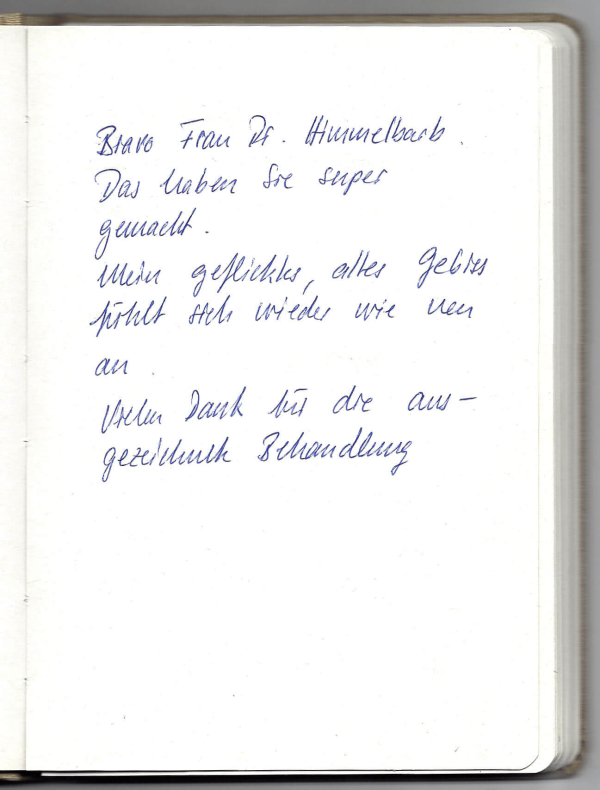 Bravo Frau Dr. Himmelbarb.
Das haben Sie super
gemacht.
Mein geflicktes, altes Gebiss
fühlt sich wieder wie neu
an.
Vielen Dank für die aus-
gezeichnete Behandlung